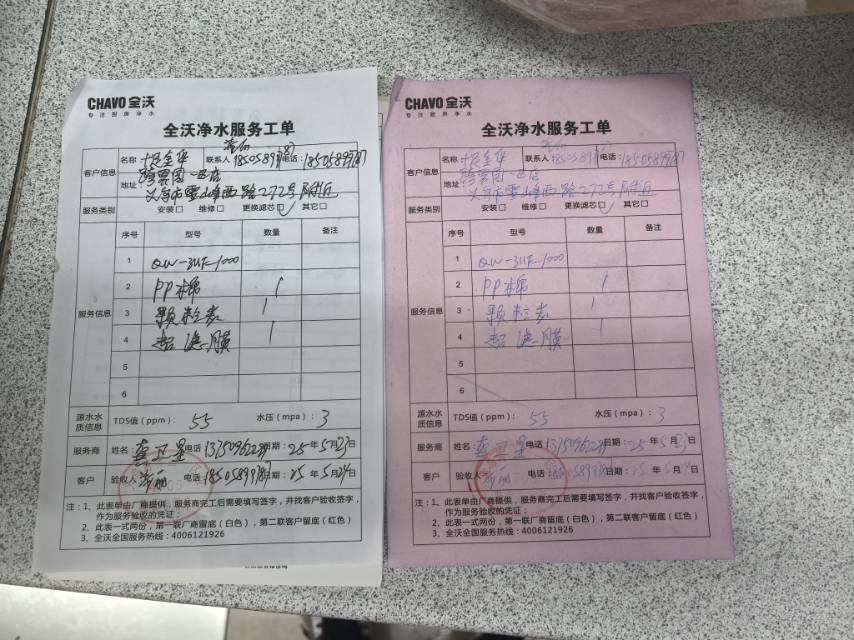 CHAVO 全沃
专注厨房净水
全沃净水服务工单
客户信息
名称
联系人
电话:
地址
义乌市雪峰西路272号附近
服务类别
安装□ 维修□ 更换滤芯☑ 其它□
序号 型号 数量 备注
服务信息
1 QW-3UF-1000
2 PP棉 1
3 颗粒炭 1
4 超滤膜 1
5
6
源水水质信息
TDS值(ppm): 55 水压(mpa): 3
服务商 姓名: 龚卫星 电话 日期: 25年5月23日
客户 验收人 电话 日期: 25年5月24日
注:1、此表单由厂商提供,服务商完工后需要填写签字,并找客户验收签字,
作为服务验收的凭证;
2、此表一式两份,第一联厂商留底(白色),第二联客户留底(红色)
3、全沃全国服务热线:4006121926
CHAVO 全沃
专注厨房净水
全沃净水服务工单
客户信息
名称
联系人
电话:
地址
义乌市雪峰西路272号附近
服务类别
安装□ 维修□ 更换滤芯☑ 其它□
序号 型号 数量 备注
服务信息
1 QW-3UF-1000
2 PP棉 1
3 颗粒炭 1
4 超滤膜 1
5
6
源水水质信息
TDS值(ppm): 55 水压(mpa): 3
服务商 姓名: 龚卫星 电话 日期: 25年5月23日
客户 验收人 电话 日期:
注:1、此表单由厂商提供,服务商完工后需要填写签字,并找客户验收签字,
作为服务验收的凭证;
2、此表一式两份,第一联厂商留底(白色),第二联客户留底(红色)
3、全沃全国服务热线:4006121926